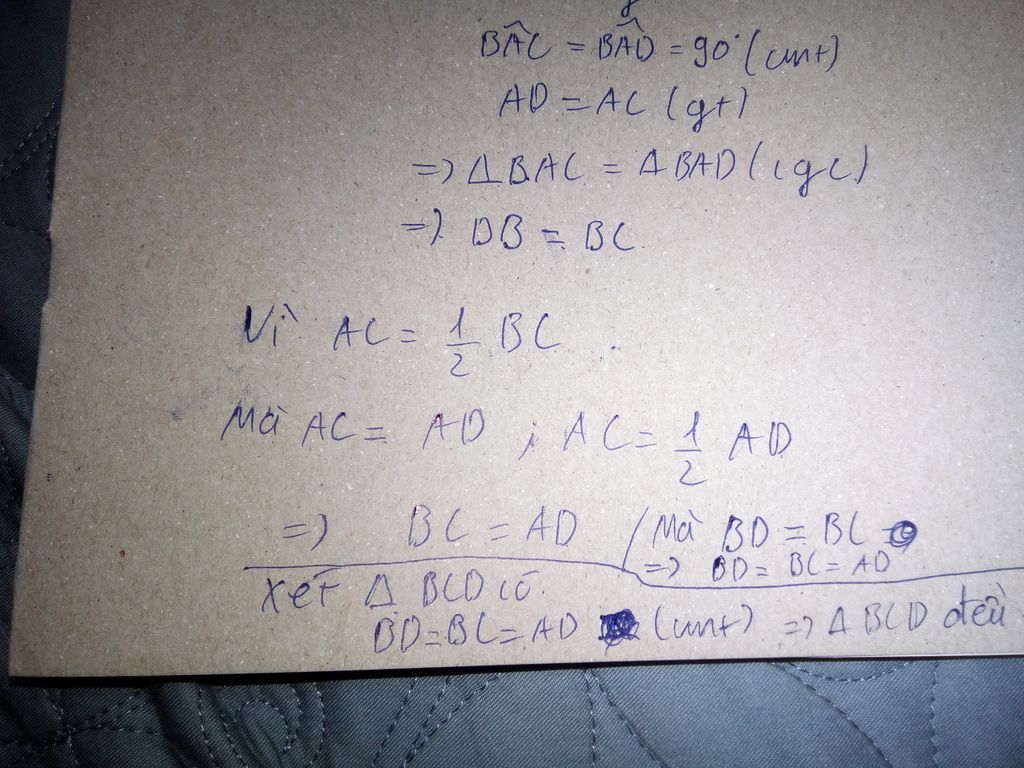 BÂC = BÂD = 90° (cmt)
AD = AC (gt)
=> Δ BAC = Δ BAD (cgc)
=> DB = BC
Vì AC = 1/2 BC .
Mà AC = AD ; AC = 1/2 AD
=> BC = AD / Mà BD = BC
=> BD = BC = AD
Xét Δ BCD có
BD = BC = AD (cmt) => Δ BCD đều